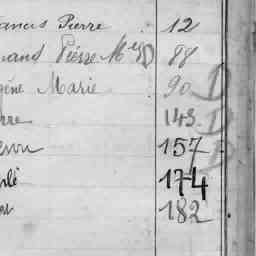 rancis Pierre 12
nand Pierre Mie 88
gène Marie 90 D
rre 143 D
157 D
lé 174
182